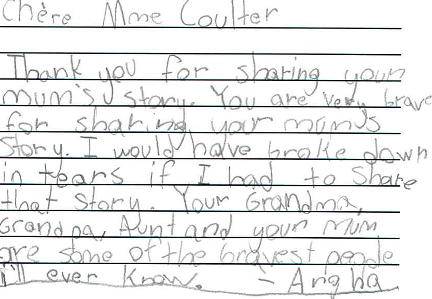 Chère Mme Coulter
Thank you for sharing your
mum's story. You are very brave
for sharing your mums
story. I would have broke down
in tears if I had to share
that story. Your Grandma,
Grandpa, Aunt and your mum
are some of the bravest people
I'll ever know. - Angha